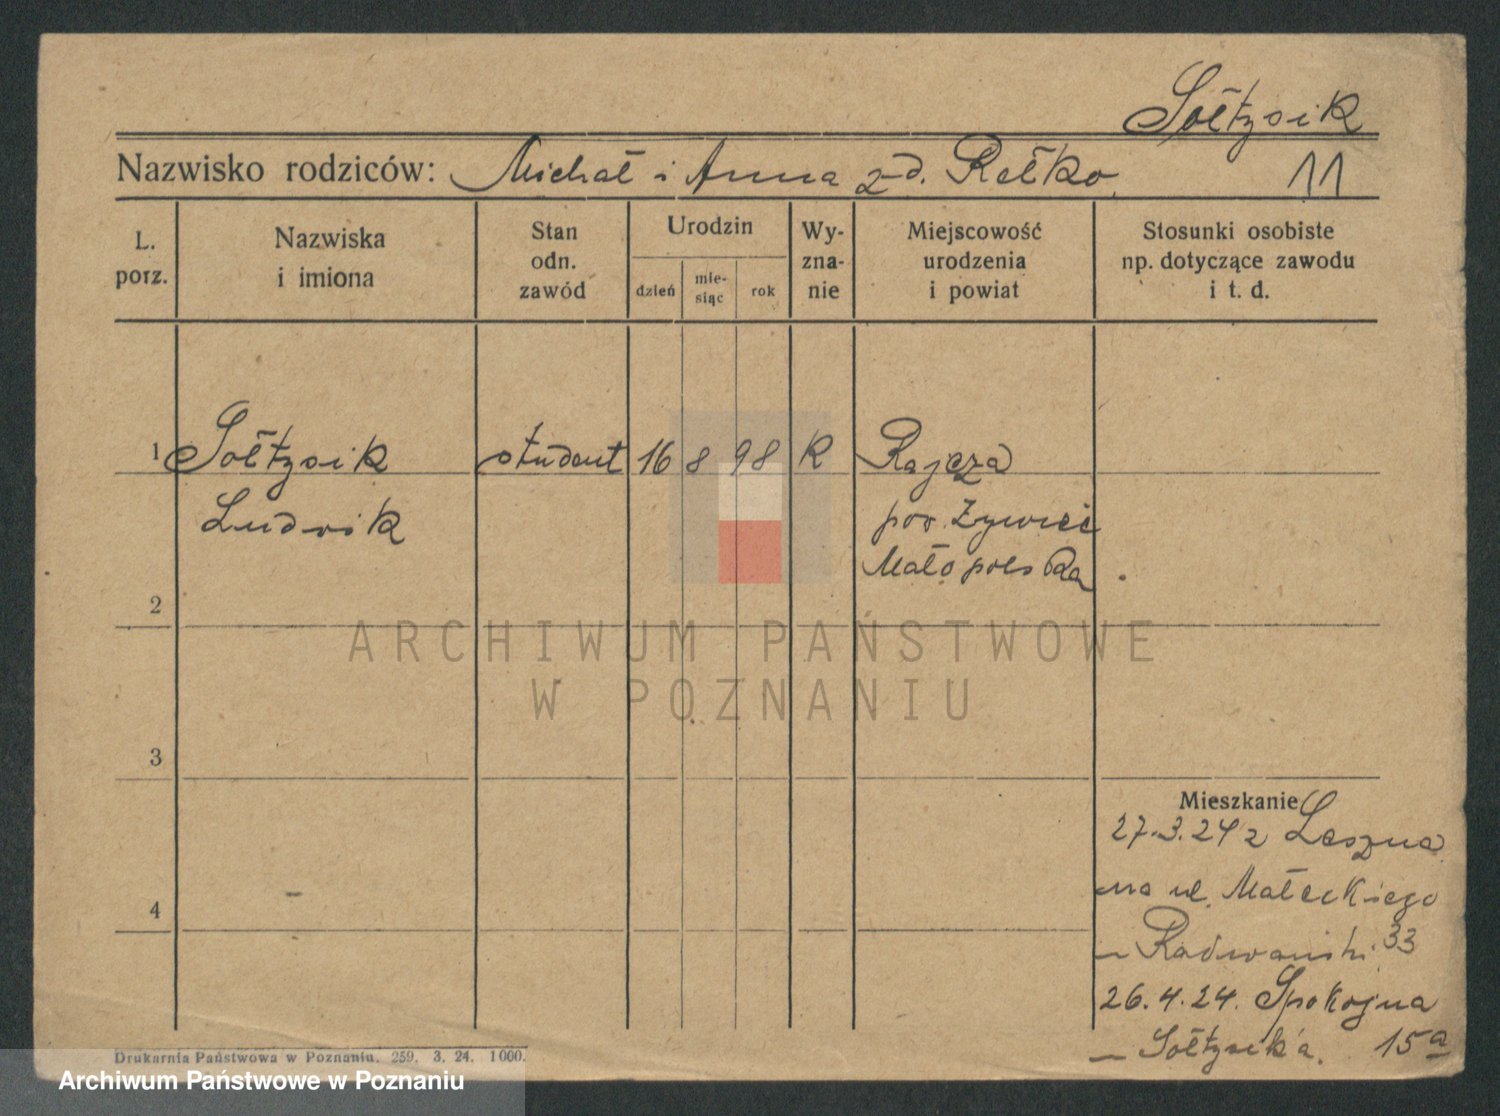 Sołtysik
Nazwisko rodziców: Michał i Anna z d. Rełko 11
L. porz.
Nazwiska i imiona
Stan odn. zawód
Urodzin
dzień
mie-siąc
rok
Wy-zna-nie
Miejscowość urodzenia i powiat
Stosunki osobiste np. dotyczące zawodu i t. d.
1 Sołtysik student 16 8 98 K Rajcza
Ludwik pow. Żywiec
Małopolska
2
3
Mieszkanie
27.3.24 z Leszna
na ul. Małeckiego
4
33
– Radwański
26.4.24. Spokojna
– Sołtysik 15a
Drukarnia Państwowa w Poznaniu. 259. 3. 24. 1000.
ARCHIWUM PAŃSTWOWE
W POZNANIU
Archiwum Państwowe w Poznaniu